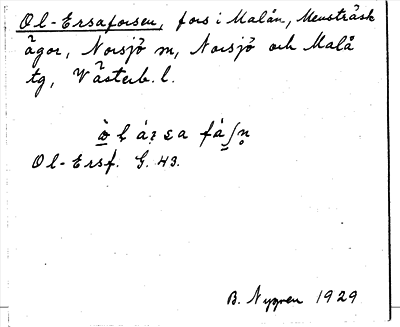 Ol-Ersaforsen, fors i Malån, Mensträsk
ägor, Norsjö m, Norsjö och Malå
tg, Västerb. l.
Ol-Ersf. G. 43.
B. Nygren 1929